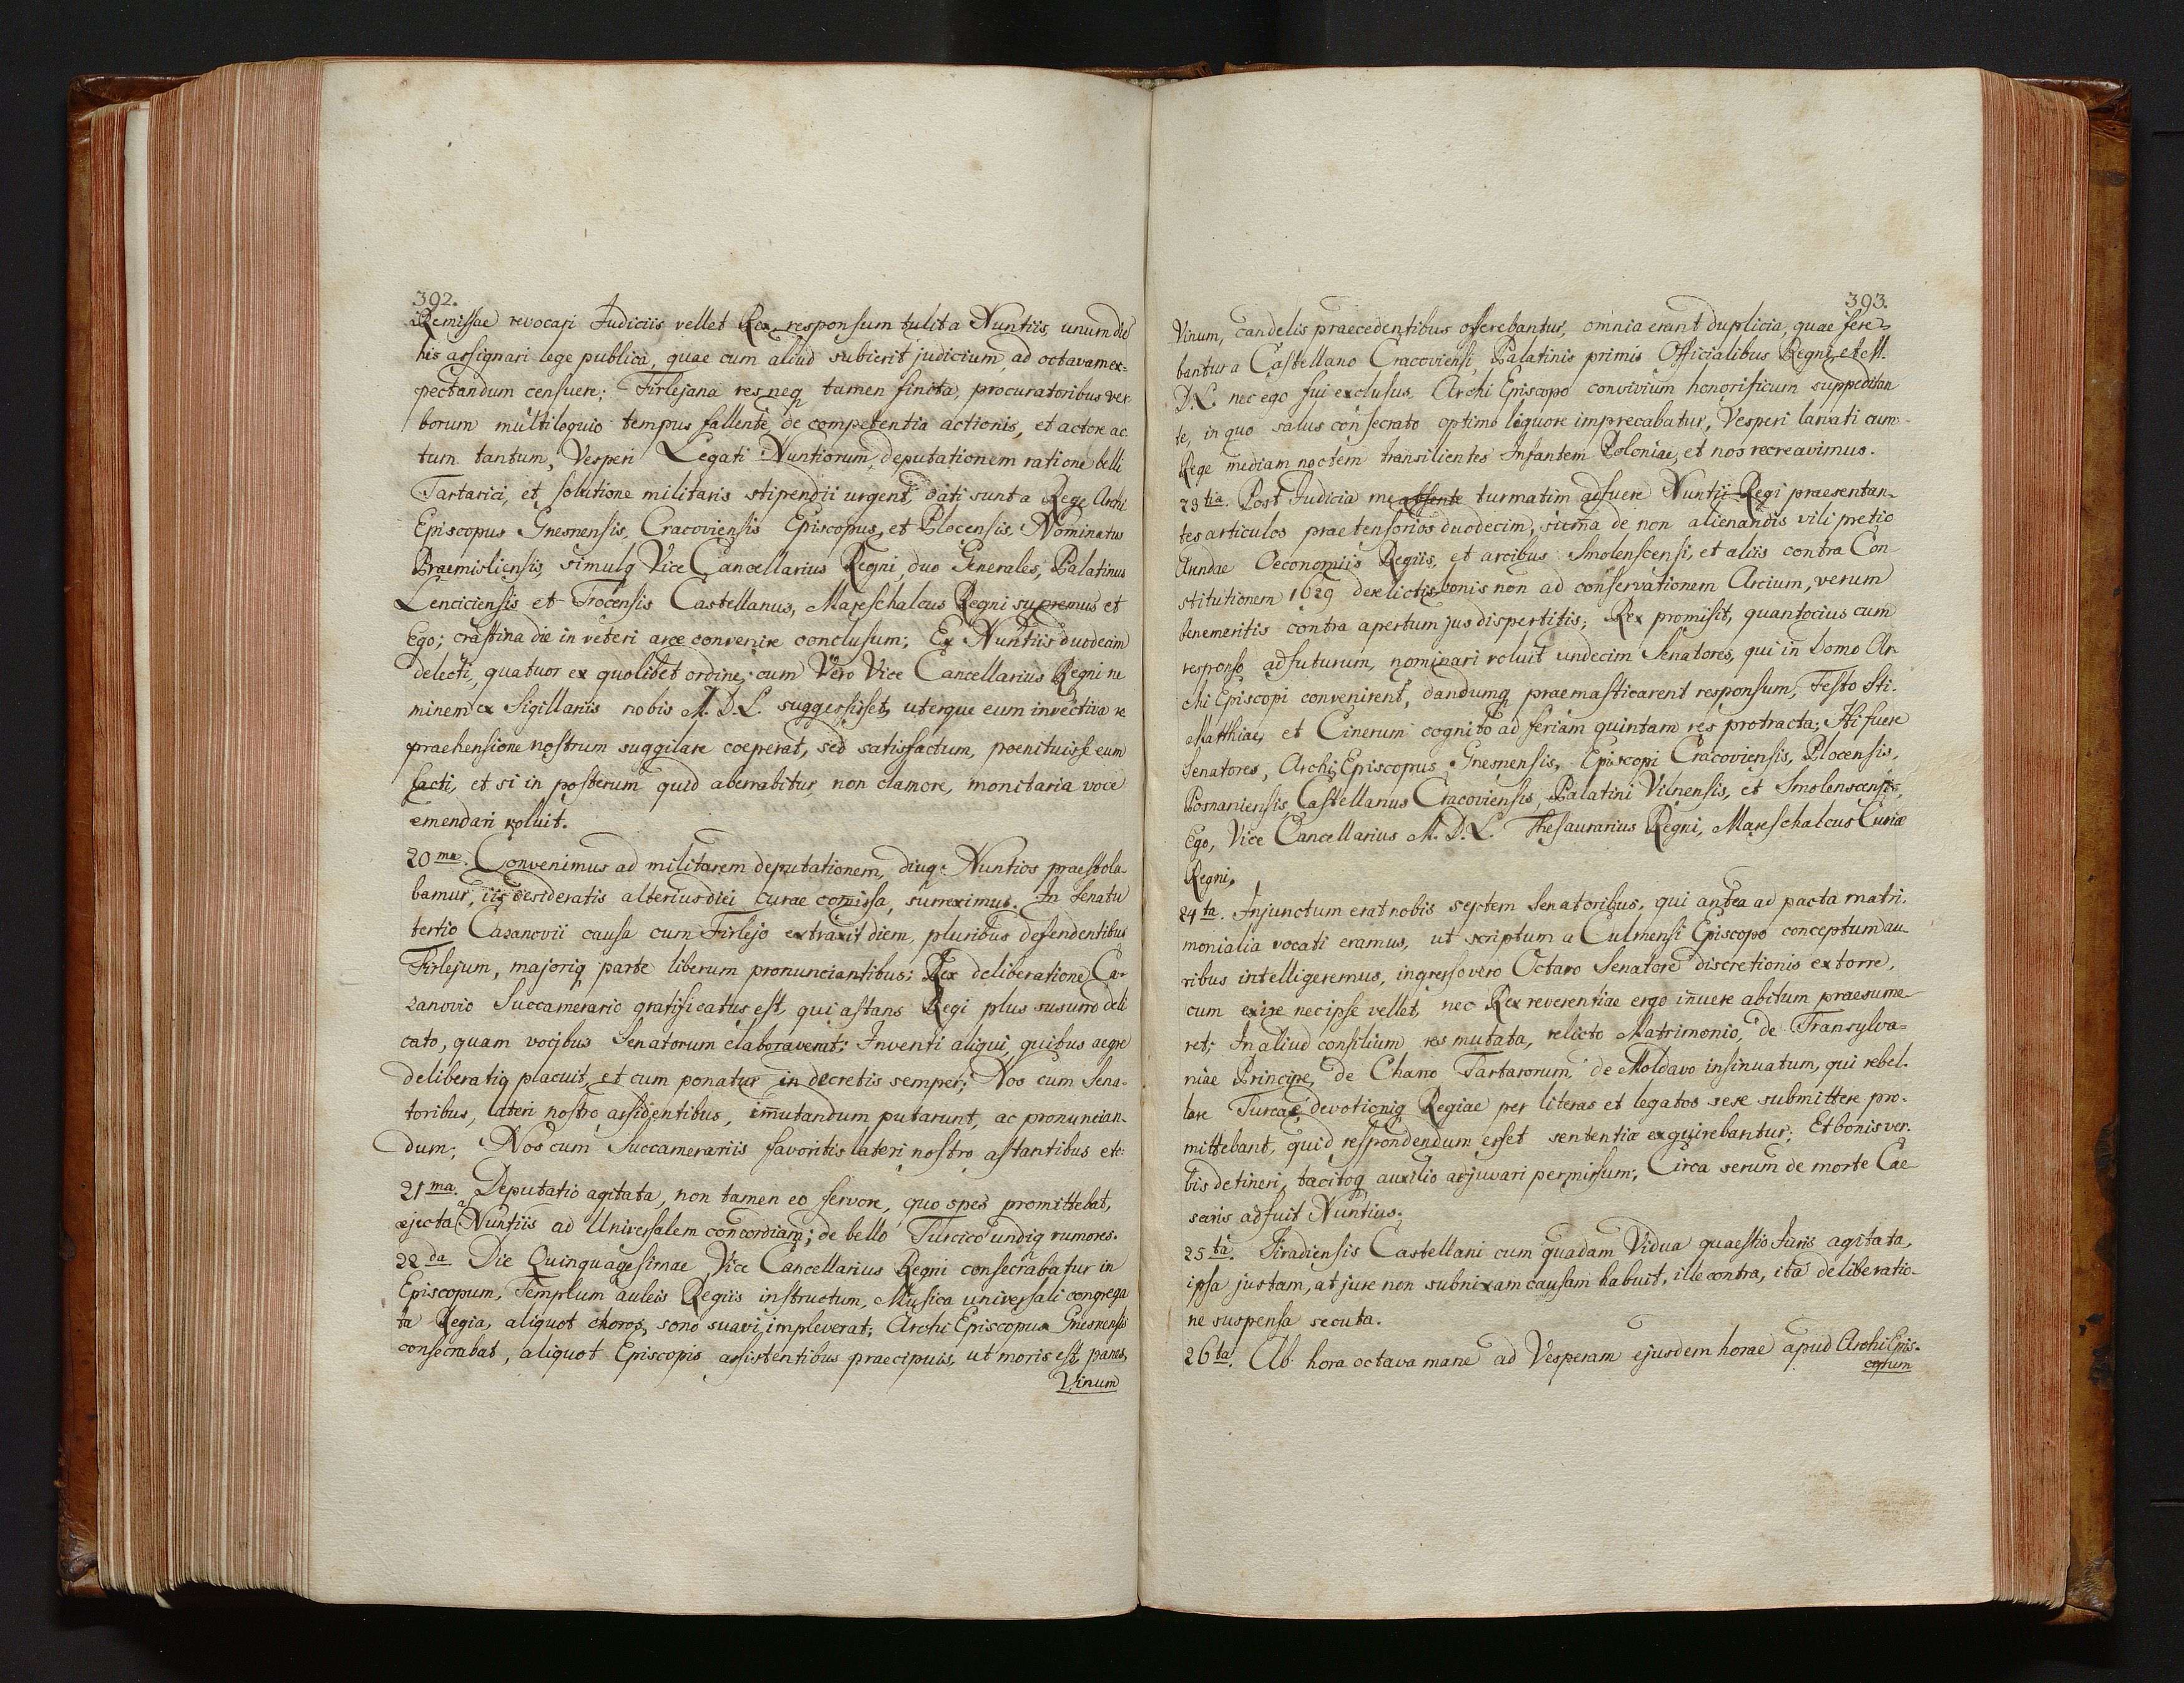 392.
Remissae revocari Judiciis vellet Rex, responsum tulit a Nuntiis, unum die
his assignari lege publica, quae cum aliud subierit judicium, ad octavam ex=
pectandum censuere; Firlejana res neq tamen finita, procuratoribus ver
borum multiloquio tempus fallente, de competentia actionis, et actore ac
tum tantum, Vesperi Legati Nuntiorum, deputationem ratione belli
Tartarici, et solutione militaris stipendii urgent, dati sunt a Rege Archi
Episcopus Gnesnensis, Cracoviensis Episcopus, et Plocensis, Nominatus
Praemisliensis, simulq Vice Cancellarius Regni, duo Generales, Palatinus
Lenciciensis et Trocensis Castellanus, Mareschalcus Regni supremus et
Ego; crastina die in veteri arce convenire conclusum; Ex Nuntiis duodecim
delecti, quatuor ex quolibet ordine; cum Vero Vice Cancellarius Regni ne
minem ex Sigillariis nobis M. D. L. suggessisset, uterque eum invectiva re
praehensione nostrum suggilare coeperat, sed satisfactum, poenituisse eum
facti, et si in posterum quid aberrabitur, non clamore, monitaria voce
emendari voluit.
20ma. Convenimus ad militarem deputationem, diuq: Nuntios praestola-
bamur, iis desideratis alterius diei curae comissa, surreximus. In Senatu
tertio Cazanovii causa cum Firlejo extraxit diem, pluribus defendentibus
Firlejum, majoriq parte liberum pronunciantibus; Rex deliberatione Ca-
zanovio Succamerario gratificatus est, qui astans Regi plus susurro deli
cato, quam vocibus Senatorum elaboraverat; Inventi aliqui, quibus aegre
deliberatio placuit, et cum ponatur in decretis semper; Nos cum Sena-
toribus, lateri nostro assidentibus, imutandum putarunt, ac pronuncian-
dum; Nos cum Succamerariis favoritis lateri nostro astantibus etc:
21ma. Deputatio agitata, non tamen eo fervore, quo spes promittebat,
rejecta a Nuntiis ad Universalem concordiam; de bello Turcico undiq rumores.
22da Die Quinquagesimae Vice Cancellarius Regni consecrabatur in
Episcopum, Templum auleis Regiis instructum, Musica universali congrega
ta Regia, aliquot choros, sono suavi impleverat; Archi Episcopus Gnesnensis
consecrabat, aliquot Episcopis assistentibus praecipuis, ut moris est, panes,
Vinum
393.
Vinum, candelis praecedentibus offerebantur, omnia erant duplicia, quae fere-
bantur a Castellano Cracoviensi, Palatinis primis Officialibus Regni, et M.
D. L. nec ego fui exclusus. Archi Episcopo convivium honorificum suppeditan
te, in quo salus consecrato optimo liquore imprecabatur, Vesperi larvati cum
Rege mediam noctem transilientes Infantem Poloniae, et nos recreavimus.
23tia. Post Judicia me absente turmatim adfuere Nuntii Regi praesentan-
tes articulos praetensorios duodecim, sicma de non alienandis vili pretio
Oeconomiis Regiis, et arcibus Smolenscensi, et aliis contra Con-
stitutionem 1629 derelictis, bonis non ad conservationem Arcium, verum
benemeritis contra apertum jus dispertitis; Rex promisit, quantocius cum
responso adfuturum, nominari voluit undecim Senatores, qui in Domo Ar
chi Episcopi convenirent, dandumq praemasticarent responsum, Festo Sti.
Matthiae, et Cinerum cognito ad feriam quintam res protracta; Hi fuere
Senatores, Archi Episcopus Gnesnensis, Episcopi Cracoviensis, Plocensis,
Posnaniensis Castellanus Cracoviensis, Palatini Vilnensis, et Smolenscensis,
Ego, Vice Cancellarius M. D. L. Thesaurarius Regni, Mareschalcus Curiae
Regni.
24ta. Injunctum erat nobis septem Senatoribus, qui antea ad pacta matri-
monialia vocati eramus, ut scriptum a Culmensi Episcopo conceptum au
ribus intelligeremus, ingresso vero Octavo Senatore discretionis extorre,
cum exire nec ipse vellet, nec Rex reverentiae ergo inuere abitum praesume
ret; In aliud consilium res mutata, relicto Matrimonio, de Transylva=
niae Principe, de Chano Tartarorum, de Moldavo insinuatum, qui rebel-
lare Turcae, devotioniq Regiae per literas et legatos sese submittere pro-
mittebant, quid respondendum esset sententiae exquirebantur; Et bonis ver-
bis detineri, tacitoq auxilio adjuvari permissum; Circa serum de morte Cae
saris adfuit Nuntius.
25ta. Siradiensis Castellani cum quadam Vidua quaestio Juris agitata,
ipsa justam, at jure non subnixam causam habuit, ille contra, ita deliberatio-
ne suspensa secuta.
26ta. Ab hora octava mane ad Vesperam ejusdem horae apud Archi Epis-
copum